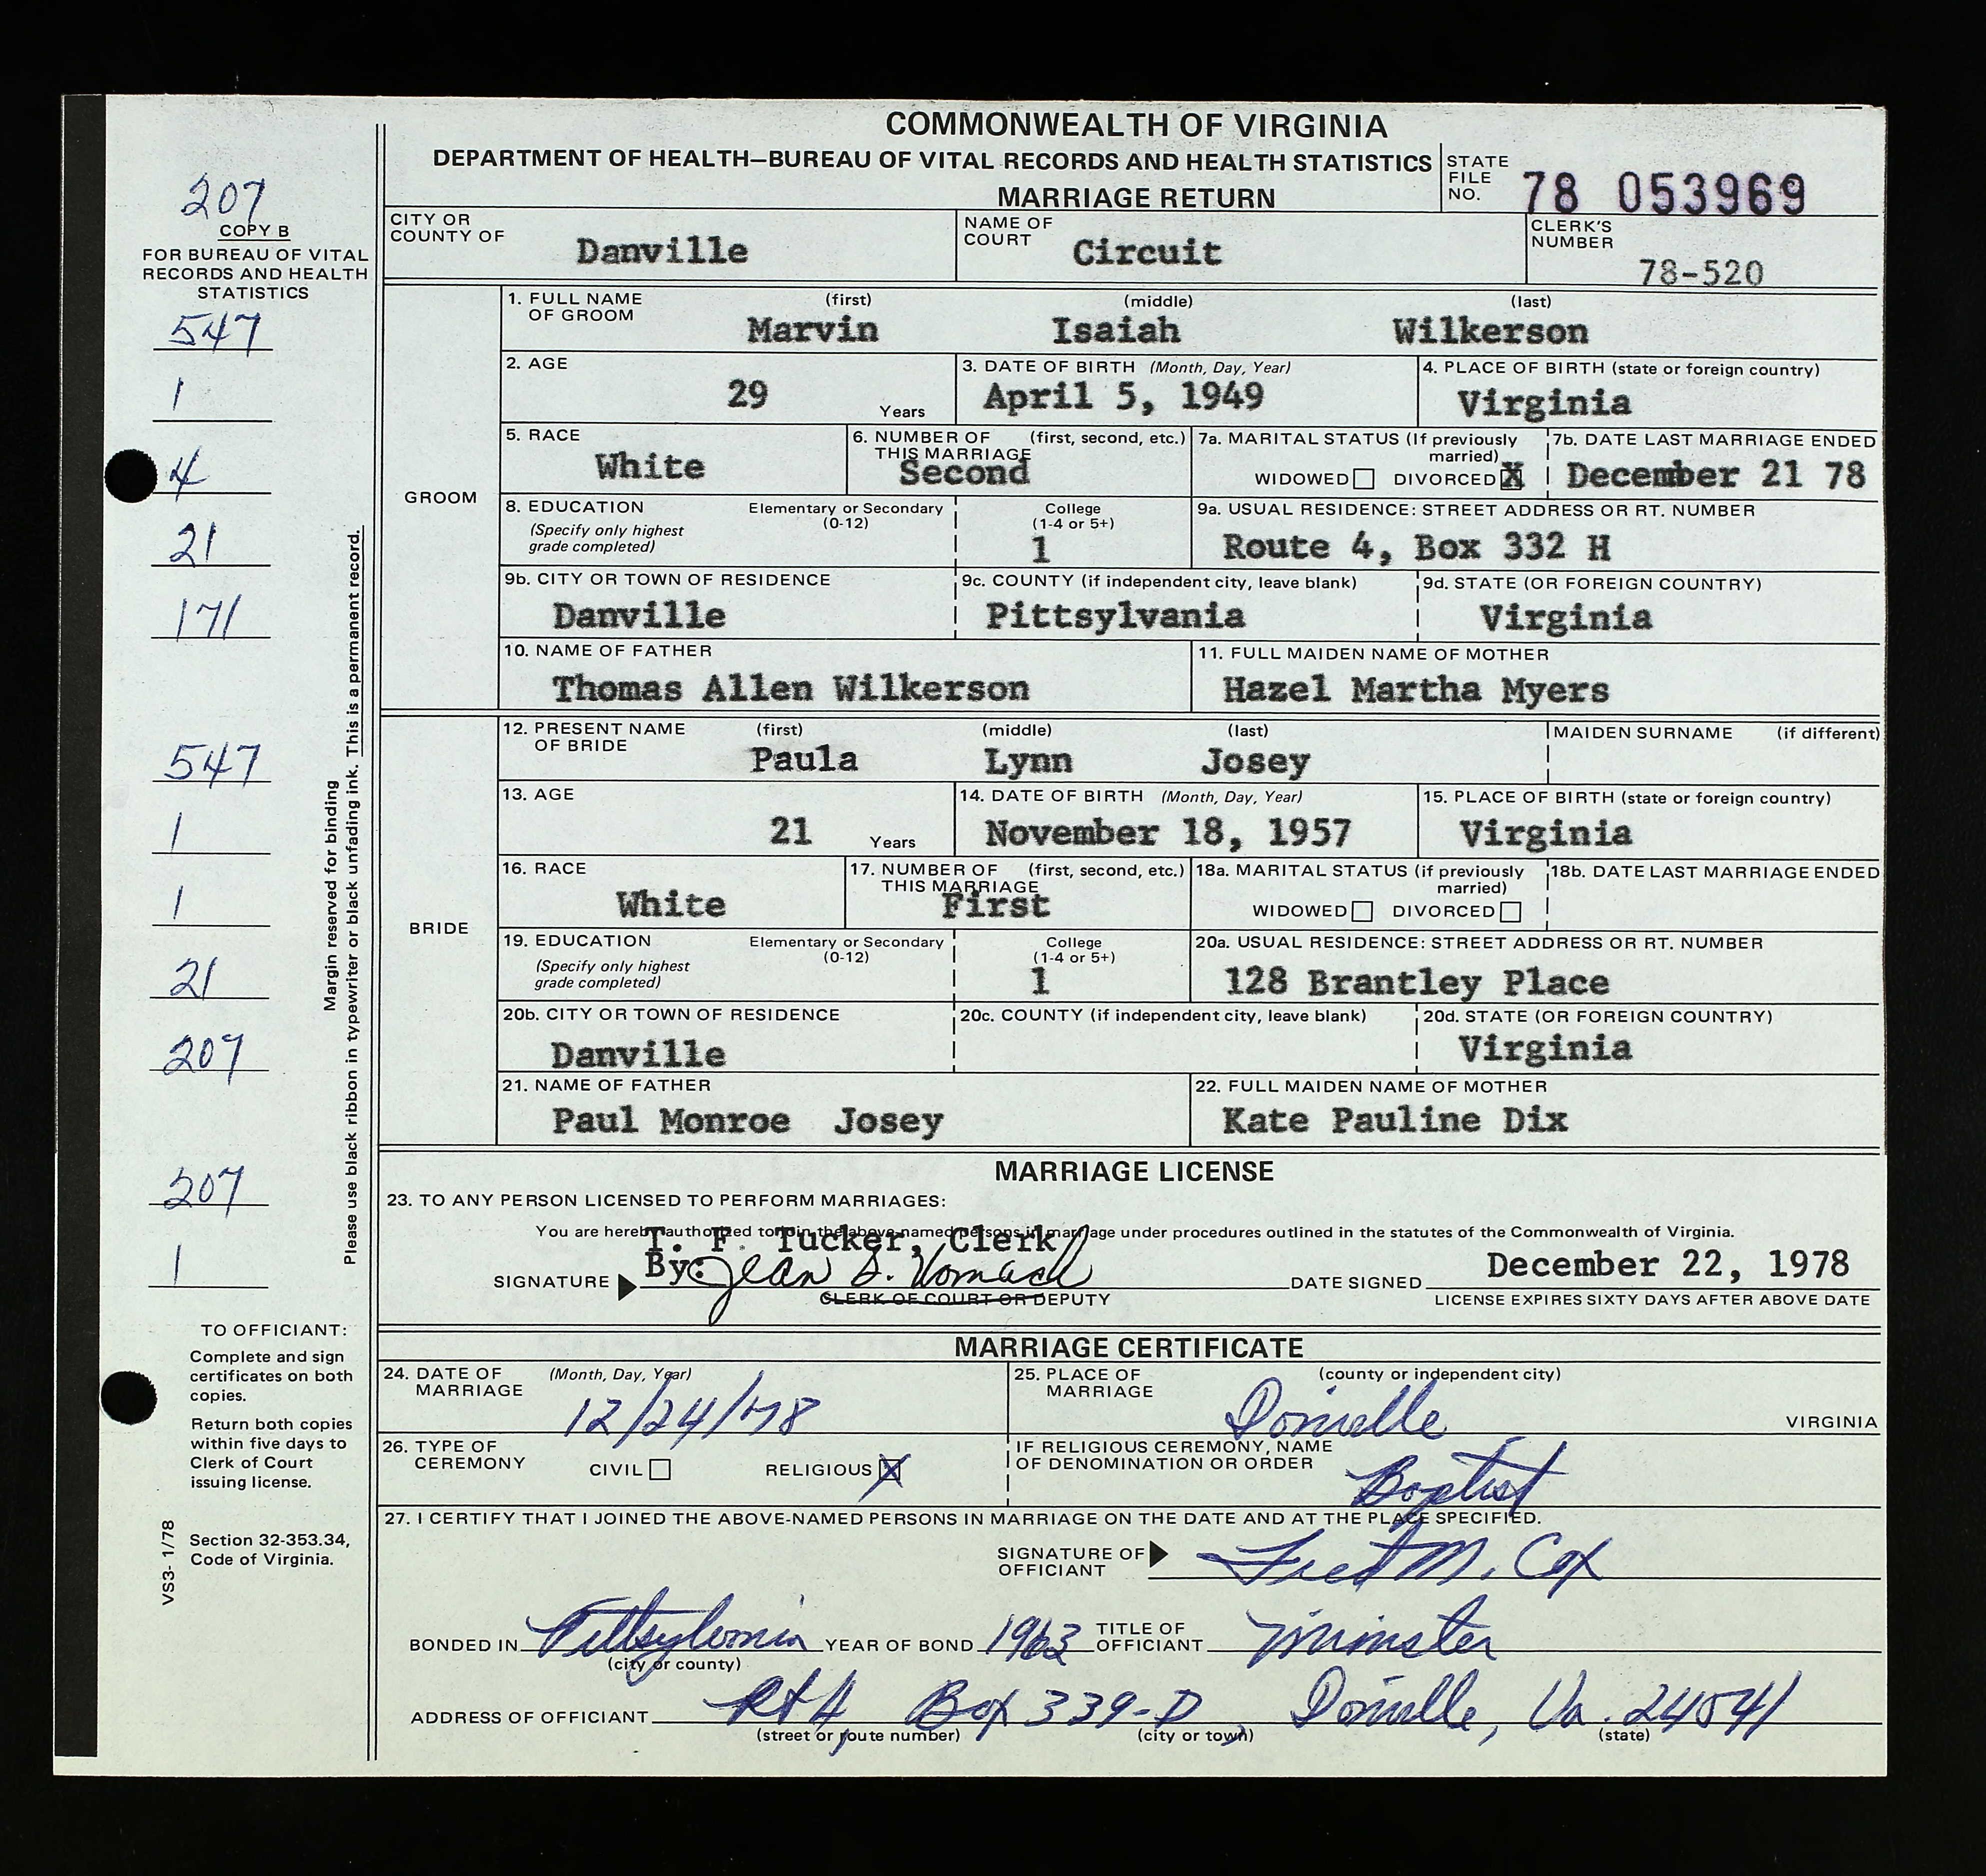 COMMONWEALTH OF VIRGINIA
DEPARTMENT OF HEALTH—BUREAU OF VITAL RECORDS AND HEALTH STATISTICS
MARRIAGE RETURN
STATE FILE NO. 78 053969
207
COPY B
FOR BUREAU OF VITAL
RECORDS AND HEALTH
STATISTICS
547
1
4
21
171
547
1
1
21
207
207
1
Margin reserved for binding
Please use black ribbon in typewriter or black unfading ink. This is a permanent record.
TO OFFICIANT:
Complete and sign
certificates on both
copies.
Return both copies
within five days to
Clerk of Court
issuing license.
Section 32-353.34,
Code of Virginia.
VS3- 1/78
CITY OR COUNTY OF Danville
NAME OF COURT Circuit
CLERK'S NUMBER 78-520
GROOM
1. FULL NAME OF GROOM (first) Marvin (middle) Isaiah (last) Wilkerson
2. AGE 29 Years
3. DATE OF BIRTH (Month, Day, Year) April 5, 1949
4. PLACE OF BIRTH (state or foreign country) Virginia
5. RACE White
6. NUMBER OF THIS MARRIAGE (first, second, etc.) Second
7a. MARITAL STATUS (If previously married) WIDOWED DIVORCED X
7b. DATE LAST MARRIAGE ENDED December 21 78
8. EDUCATION (Specify only highest grade completed) Elementary or Secondary (0-12) College (1-4 or 5+) 1
9a. USUAL RESIDENCE: STREET ADDRESS OR RT. NUMBER Route 4, Box 332 H
9b. CITY OR TOWN OF RESIDENCE Danville
9c. COUNTY (if independent city, leave blank) Pittsylvania
9d. STATE (OR FOREIGN COUNTRY) Virginia
10. NAME OF FATHER Thomas Allen Wilkerson
11. FULL MAIDEN NAME OF MOTHER Hazel Martha Myers
BRIDE
12. PRESENT NAME OF BRIDE (first) Paula (middle) Lynn (last) Josey
MAIDEN SURNAME (if different)
13. AGE 21 Years
14. DATE OF BIRTH (Month, Day, Year) November 18, 1957
15. PLACE OF BIRTH (state or foreign country) Virginia
16. RACE White
17. NUMBER OF THIS MARRIAGE (first, second, etc.) First
18a. MARITAL STATUS (if previously married) WIDOWED DIVORCED
18b. DATE LAST MARRIAGE ENDED
19. EDUCATION (Specify only highest grade completed) Elementary or Secondary (0-12) College (1-4 or 5+) 1
20a. USUAL RESIDENCE: STREET ADDRESS OR RT. NUMBER 128 Brantley Place
20b. CITY OR TOWN OF RESIDENCE Danville
20c. COUNTY (if independent city, leave blank)
20d. STATE (OR FOREIGN COUNTRY) Virginia
21. NAME OF FATHER Paul Monroe Josey
22. FULL MAIDEN NAME OF MOTHER Kate Pauline Dix
MARRIAGE LICENSE
23. TO ANY PERSON LICENSED TO PERFORM MARRIAGES:
You are hereby authorized to join the above-named persons in marriage under procedures outlined in the statutes of the Commonwealth of Virginia.
T. F. Tucker, Clerk
SIGNATURE By: Jean S. Womack
CLERK OF COURT OR DEPUTY
DATE SIGNED December 22, 1978
LICENSE EXPIRES SIXTY DAYS AFTER ABOVE DATE
MARRIAGE CERTIFICATE
24. DATE OF MARRIAGE (Month, Day, Year) 12/24/78
25. PLACE OF MARRIAGE (county or independent city) Danville VIRGINIA
26. TYPE OF CEREMONY CIVIL RELIGIOUS X
IF RELIGIOUS CEREMONY, NAME OF DENOMINATION OR ORDER Baptist
27. I CERTIFY THAT I JOINED THE ABOVE-NAMED PERSONS IN MARRIAGE ON THE DATE AND AT THE PLACE SPECIFIED.
SIGNATURE OF OFFICIANT Fred M. Cox
BONDED IN Pittsylvania (city or county) YEAR OF BOND 1963 TITLE OF OFFICIANT Minister
ADDRESS OF OFFICIANT Rt 4, Box 339-D, Danville, Va. 24541
(street or route number) (city or town) (state)